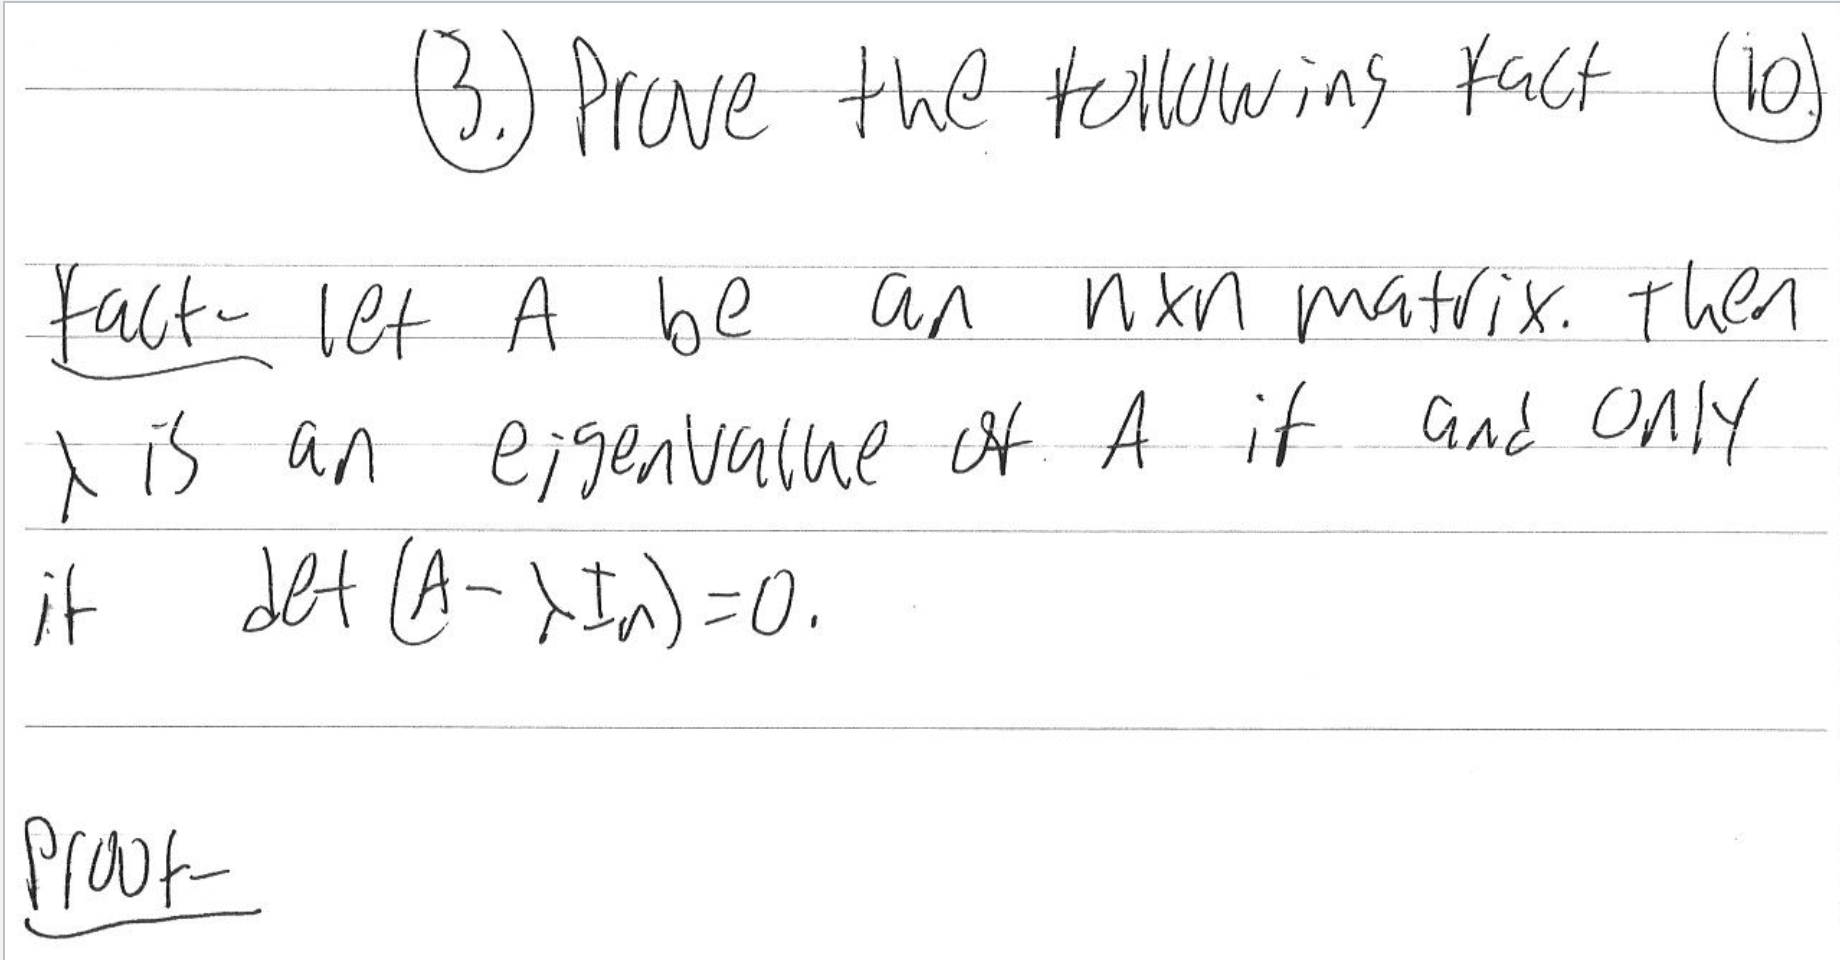 (3.) Prove the following fact (10.)
Fact- let A be an nxn matrix. Then
λ is an eigenvalue of A if and only
if det (A - λIn) = 0.
Proof-